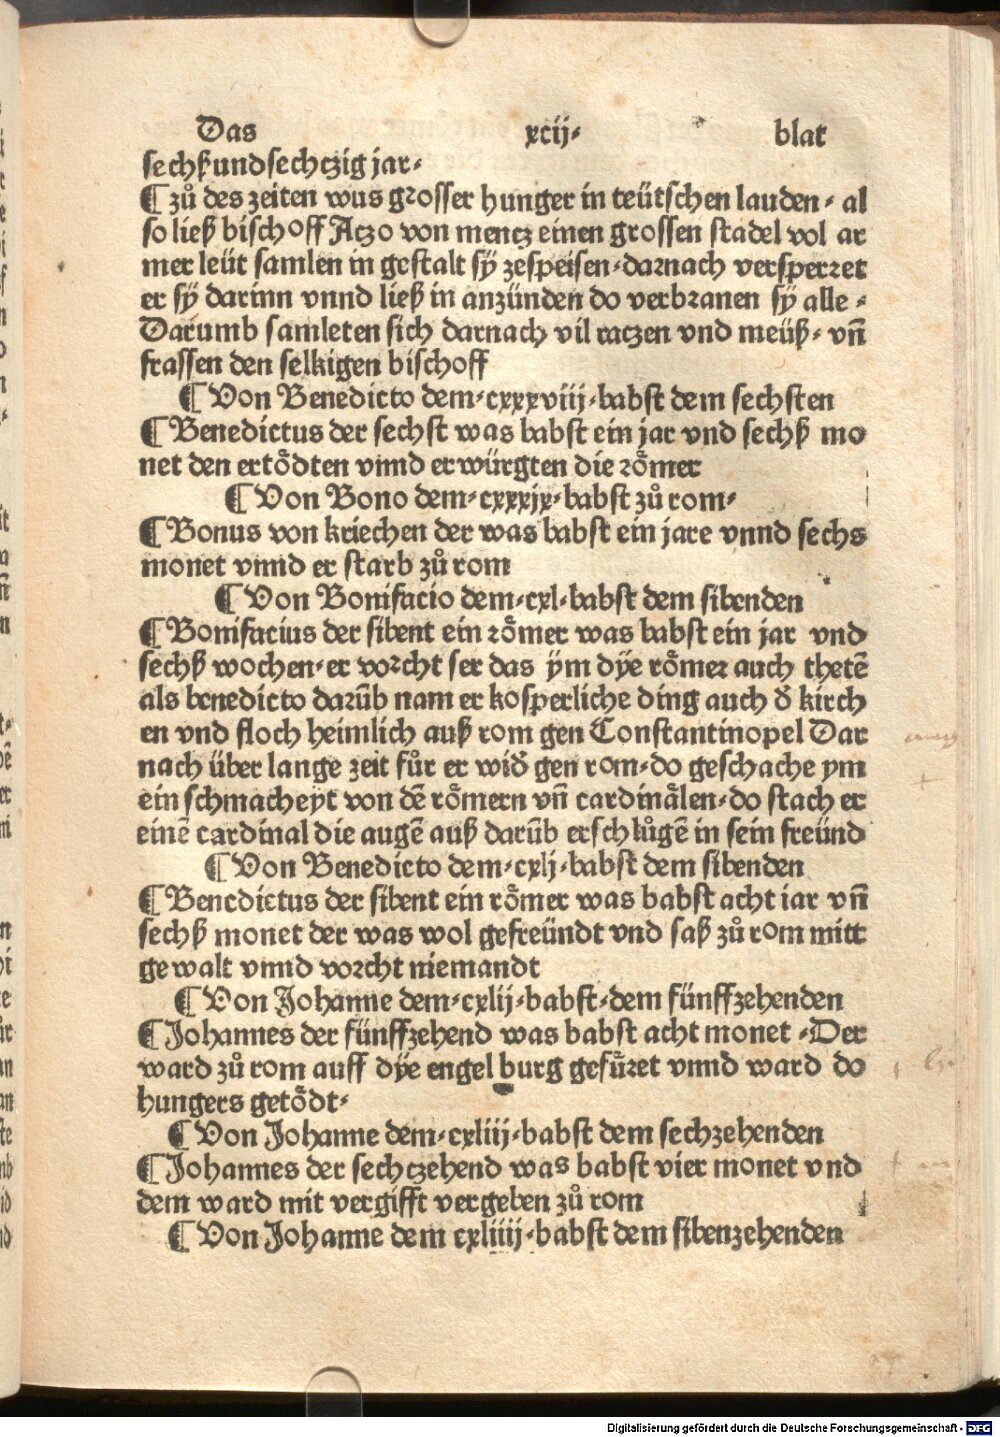 Das xcij· blat
sechßundsechczig jar·
¶ zů des zeiten wus grosser hunger in teütschen lauden· al
so ließ bischoff Atzo von mencz einen grossen stadel vol ar
mer leüt samlen in gestalt sÿ zespeisen·darnach versperret
er sÿ darinn vnnd ließ in anzünden do verbranen sÿ alle·
Darumb samleten sich darnach vil ratzen vnd meüß· vn̄
frassen den selkigen bischoff
¶ Von Benedicto dem·cxxxviij·babst dem sechsten
¶ Benedictus der sechst was babst ein jar vnd sechß mo
net den ertȍdten vnnd erwürgten die rȍmer
¶ Von Bono dem·cxxxjx·babst zů rom·
¶ Bonus von kriechen der was babst ein jare vnnd sechs
monet vnnd er starb zů rom
¶ Von Bonifacio dem·cxl·babst dem sibenden
¶ Bonifacius der sibent ein rȍmer was babst ein jar vnd
sechß wochen·er vorcht ser das ÿm dÿe rȍmer auch thetē
als benedicto darūb nam er kosperliche ding auch d̄ kirch
en vnd floch heimlich auß rom gen Constantinopel Dar
nach über lange zeit fůr er wid̄ gen rom·do geschache ym
ein schmacheyt von dē rȍmern vn̄ cardinȁlen·do stach er
einē cardinal die augē auß darūb erschlůgē in sein freünd
¶ Von Benedicto dem·cxlj·babst dem sibenden
¶ Benedictus der sibent ein rȍmer was babst acht iar vn̄
sechß monet der was wol gefreündt vnd saß zů rom mitt
gewalt vnnd vorcht niemandt
¶ Von Johanne dem·cxlij·babst·dem fünffzehenden
¶ Johannes der fünffzehend was babst acht monet ·Der
ward zů rom auff dÿe engel burg gefűret vnnd ward do
hungers getȍdt·
¶ Von Johanne dem·cxliij·babst dem sechzehenden
¶ Johannes der sechczehend was babst vier monet vnd
dem ward mit vergifft vergeben zů rom
¶ Von Johanne dem cxliiij·babst dem sibenzehenden
Digitalisierung gefördert durch die Deutsche Forschungsgemeinschaft - DFG